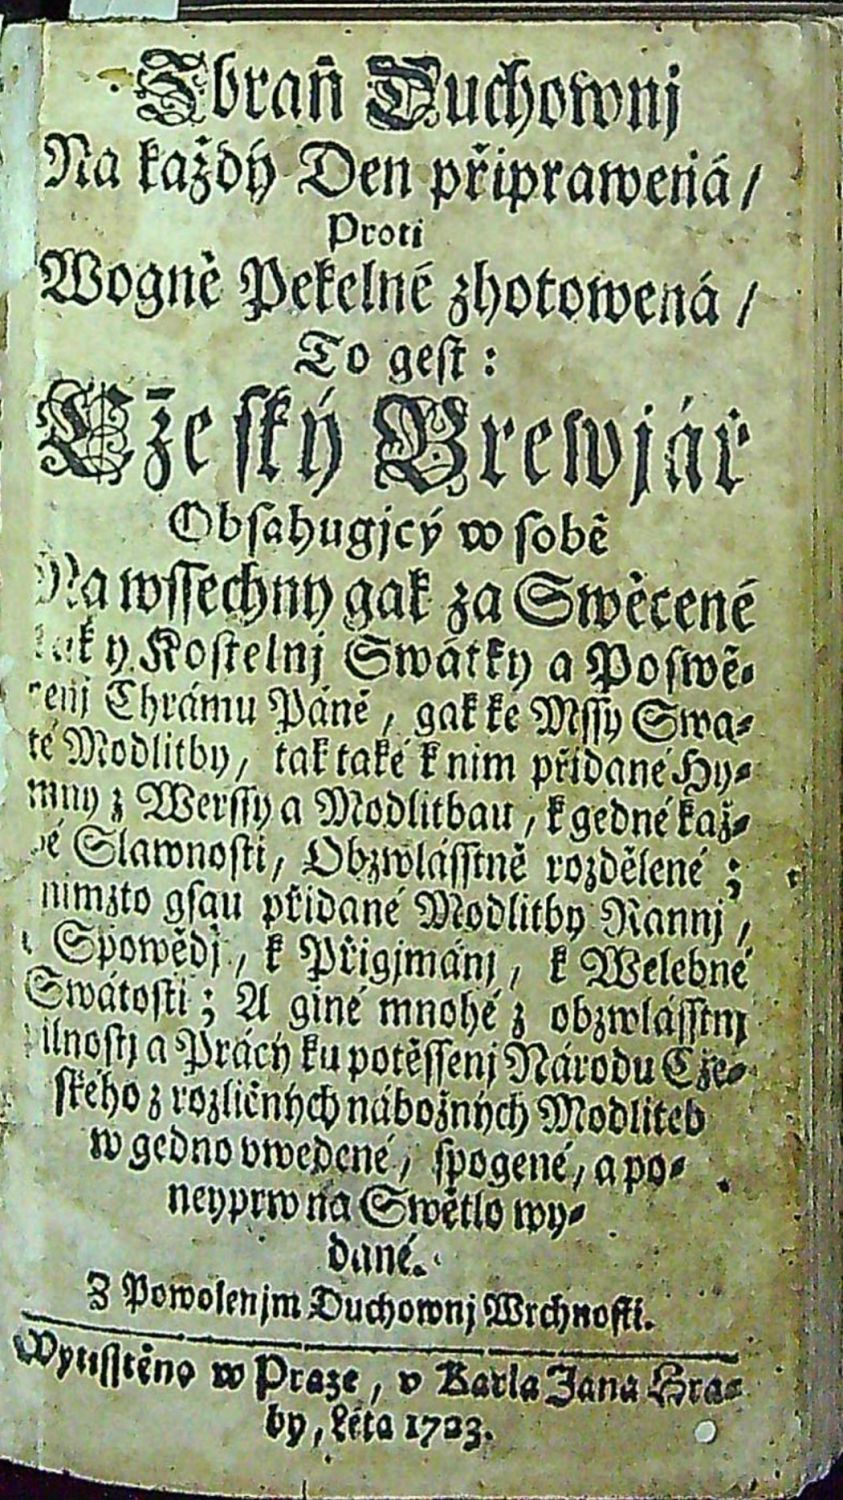 Zbraň Duchownj
Na každý Den připrawená /
Proti
Wogně Pekelné zhotowená /
To gest :
Cžeský Brewjář
Obsahugjcý w sobě
Na wssechny gak za Swěcené
tak y Kostelnj Swátky a Poswě-
cenj Chrámu Páně , gak ke Mssy Swa-
té Modlitby, tak také k nim přidané Hy-
mny z Werssy a Modlitbau , k gedné kaž-
dé Slawnosti, Obzwlásstně rozdělené ;
nimžto gsau přidané Modlitby Rannj ,
Spowědj , k Přigjmánj , k Welebné
Swátosti ; A giné mnohé z obzwlásstnj
pilnostj a Prácý ku potěssenj Národu Cže-
ského z rozličných nábožných Modliteb
w gedno vwedené, spogené, a po-
neyprw na Swětlo wy-
dané.
Z Powolenjm Duchownj Wrchnosti.
Wytisstěno w Praze , v Karla Jana Hra-
by, Léta 1723.